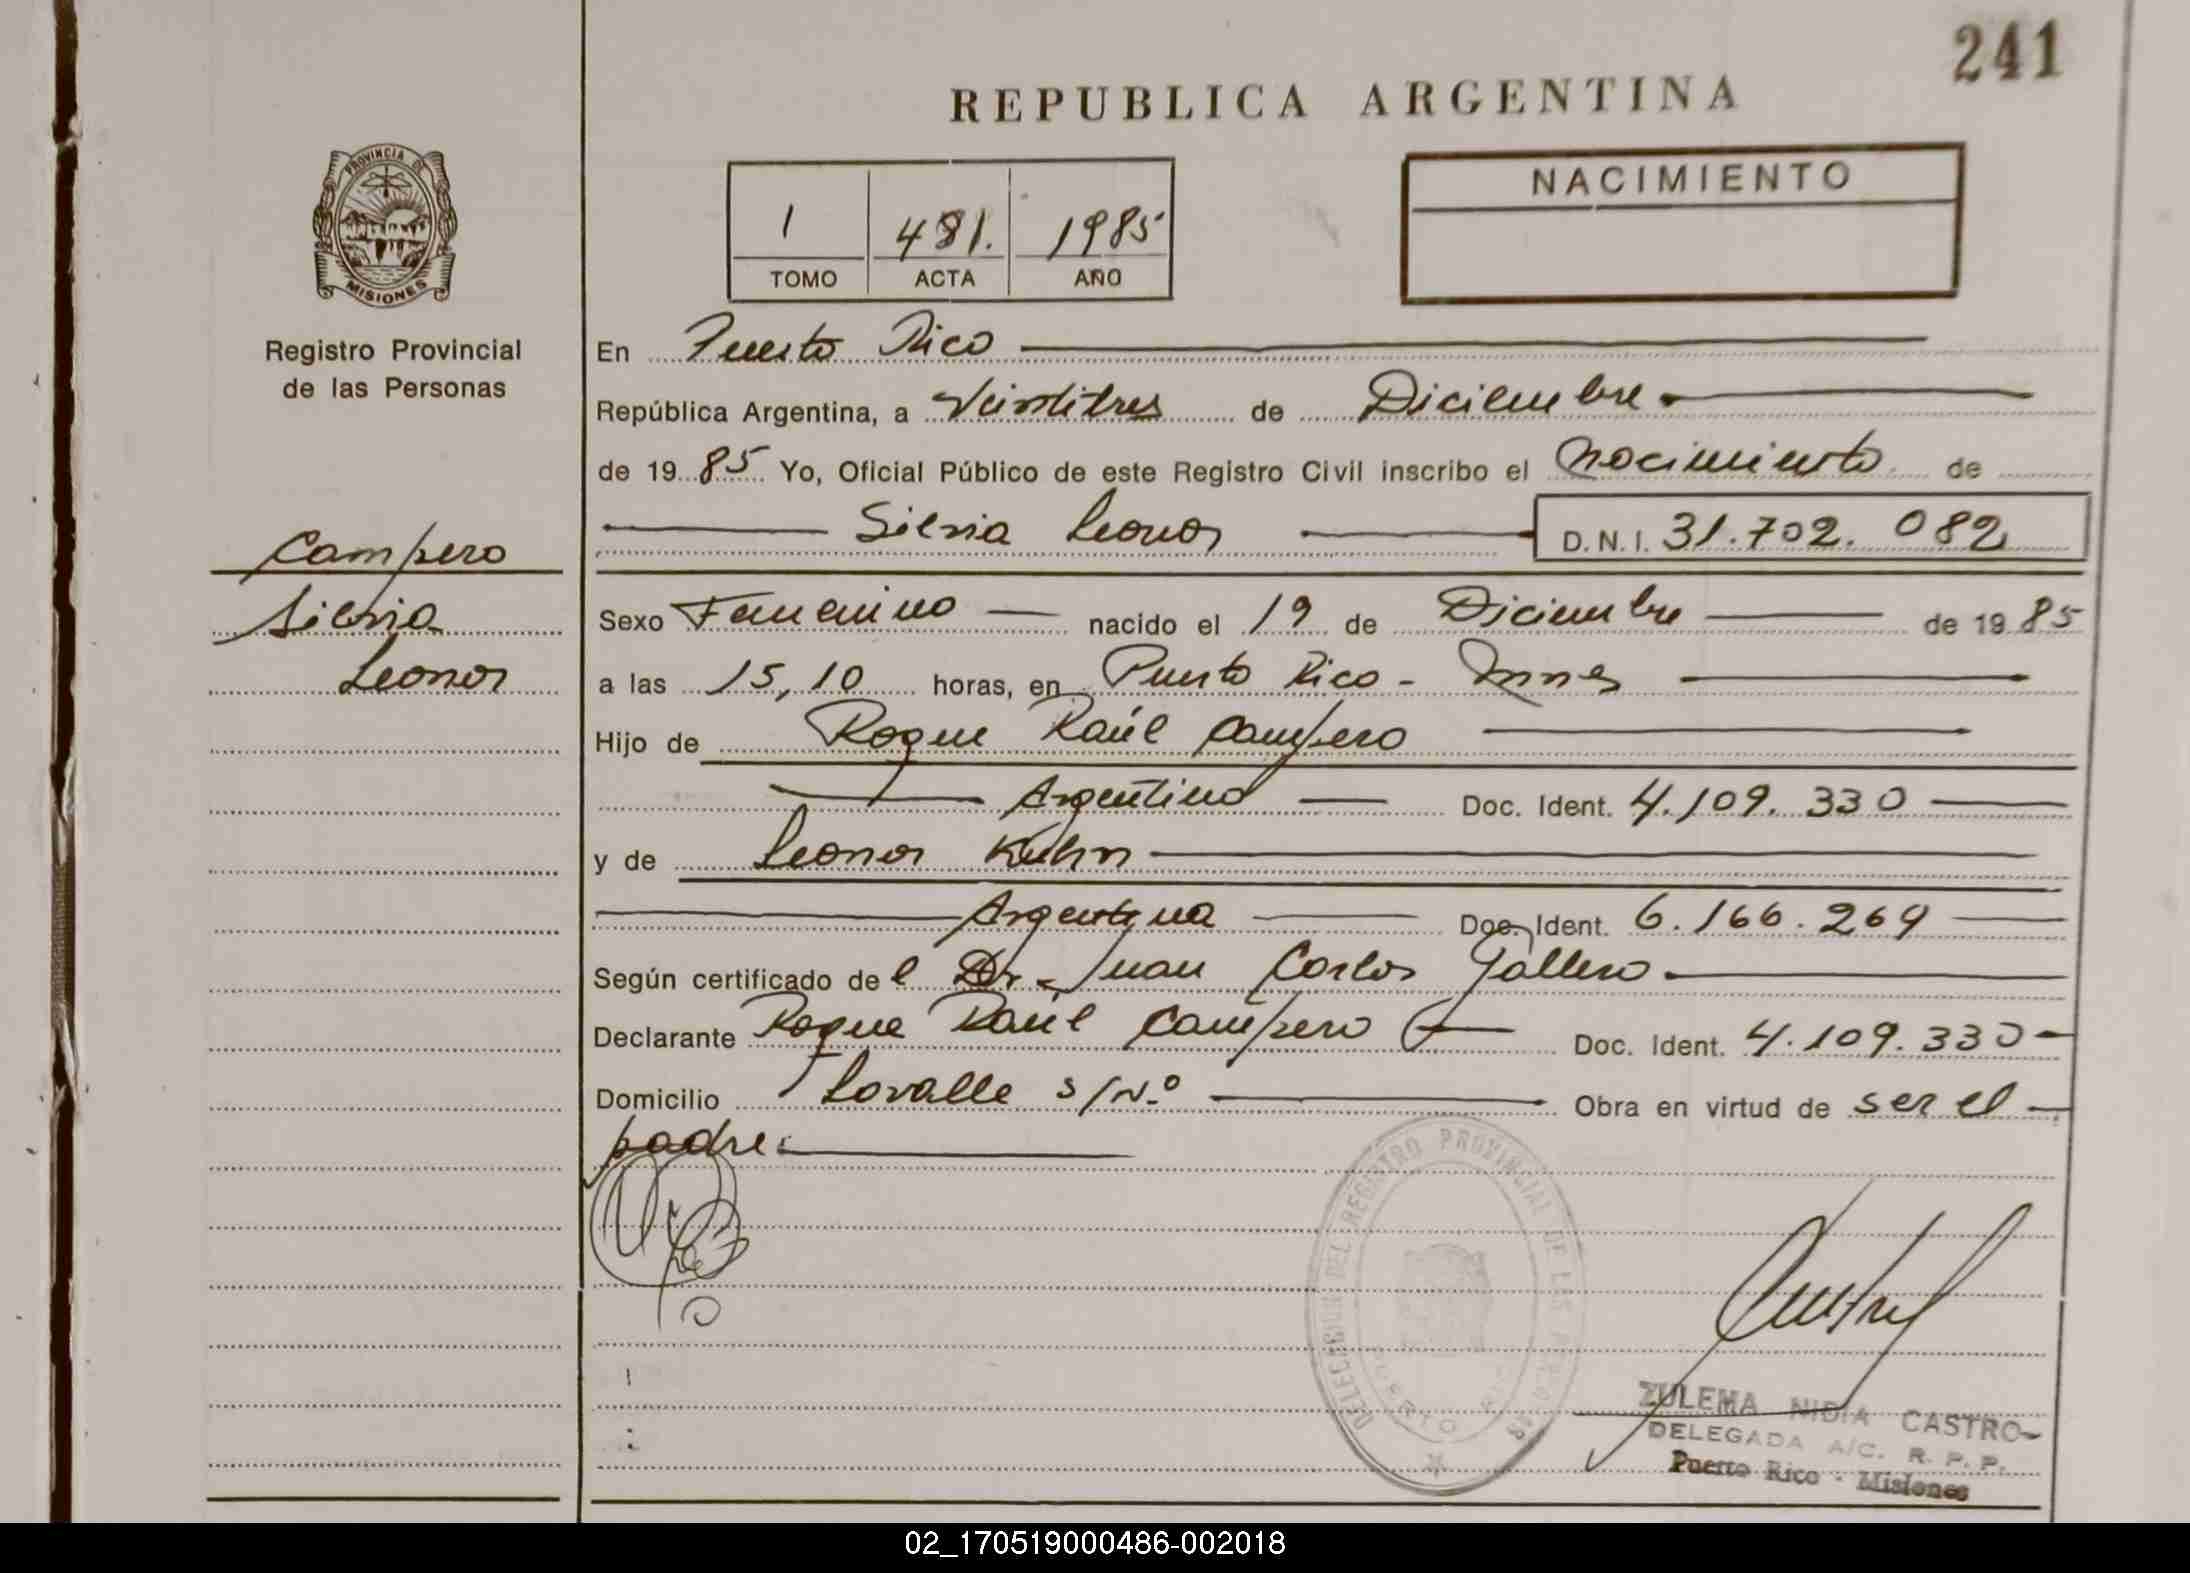 241
REPUBLICA ARGENTINA
PROVINCIA DE
MISIONES
NACIMIENTO
1 481. 1985
TOMO ACTA AÑO
Registro Provincial
de las Personas
Campero
Silvia
Leonor
En Puerto Rico
República Argentina, a Veintitres de Diciembre
de 19 85 Yo, Oficial Público de este Registro Civil inscribo el Nacimiento de
Silvia Leonor D.N.I. 31.702.082
Sexo Femenino nacido el 19 de Diciembre de 19 85
a las 15,10 horas, en Puerto Rico - Mnes
Hijo de Roque Raúl Campero
Argentino Doc. Ident. 4.109.330
y de Leonor Kuhn
Argentina Doc. Ident. 6.166.269
Según certificado de l Dr. Juan Carlos Gallero
Declarante Roque Raúl Campero Doc. Ident. 4.109.330
Domicilio Lavalle s/N.º Obra en virtud de ser el
padre
DELEGACION DEL REGISTRO PROVINCIAL DE LAS PERSONAS
PUERTO RICO
ZULEMA NIDIA CASTRO
DELEGADA A/C. R. P. P.
Puerto Rico - Misiones
02_170519000486-002018